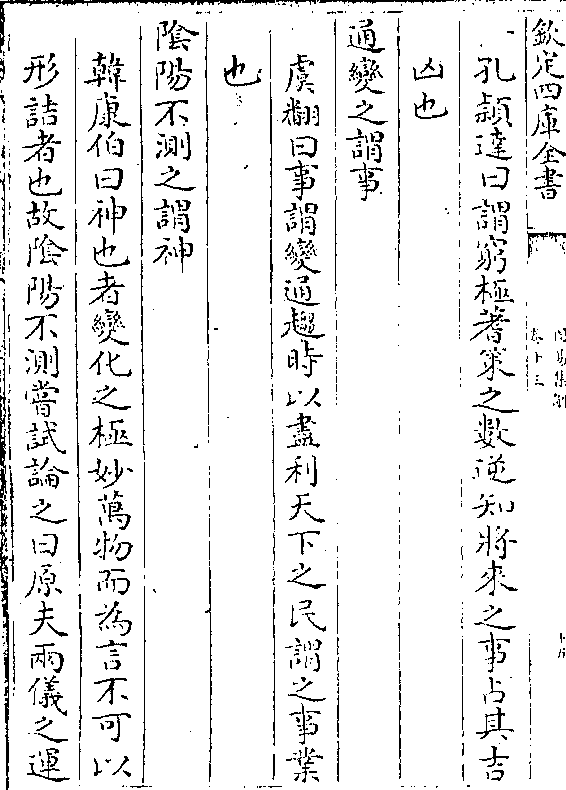 欽定四庫全書
周易集解
卷十三
孔穎達曰謂窮極蓍策之數逆知將來之事占其吉
凶也
通變之謂事
虞翻曰事謂變通趨時以盡利天下之民謂之事業
也
陰陽不測之謂神
韓康伯曰神也者變化之極妙萬物而為言不可以
形詰者也故陰陽不測嘗試論之曰原夫兩儀之運